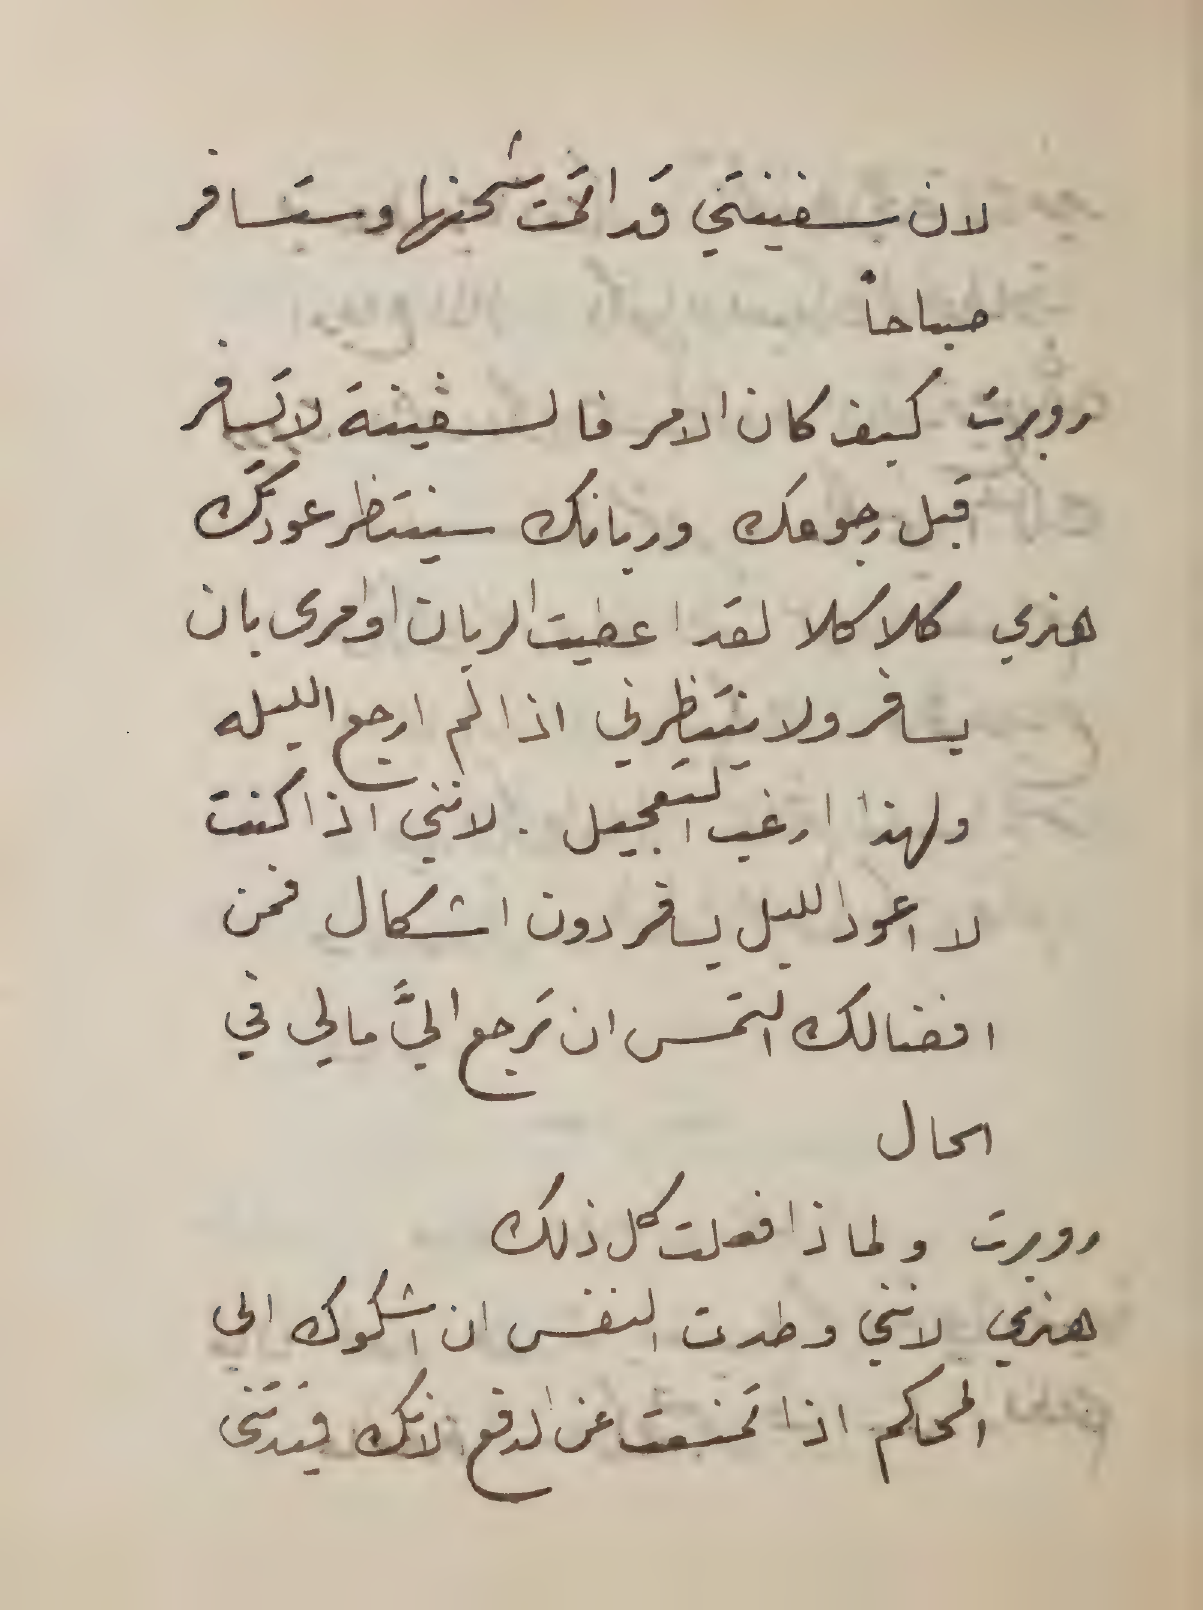 لان سفينتي قد اتمت شحنها وستسافر
صباحاً
روبرت كيف كان الامر فالسفينة لا تسافر
قبل رجوعك وربانك سينتظر عودتك
هنري كلا كلا لقد اعطيت الربان اوامرى بان
يسافر ولا ينتظرني اذا لم ارجع الليله
ولهذا ارغب التعجيل . لانني اذا كنت
لا اعود الليل يسافر دون اشكال فمن
افضالك التمس ان ترجع اليَّ مالي في
الحال
روبرت ولماذا فعلت كل ذلك
هنري لانني وطدت النفس ان اشكوك الى
المحاكم اذا تمنعت عن الدفع لانك